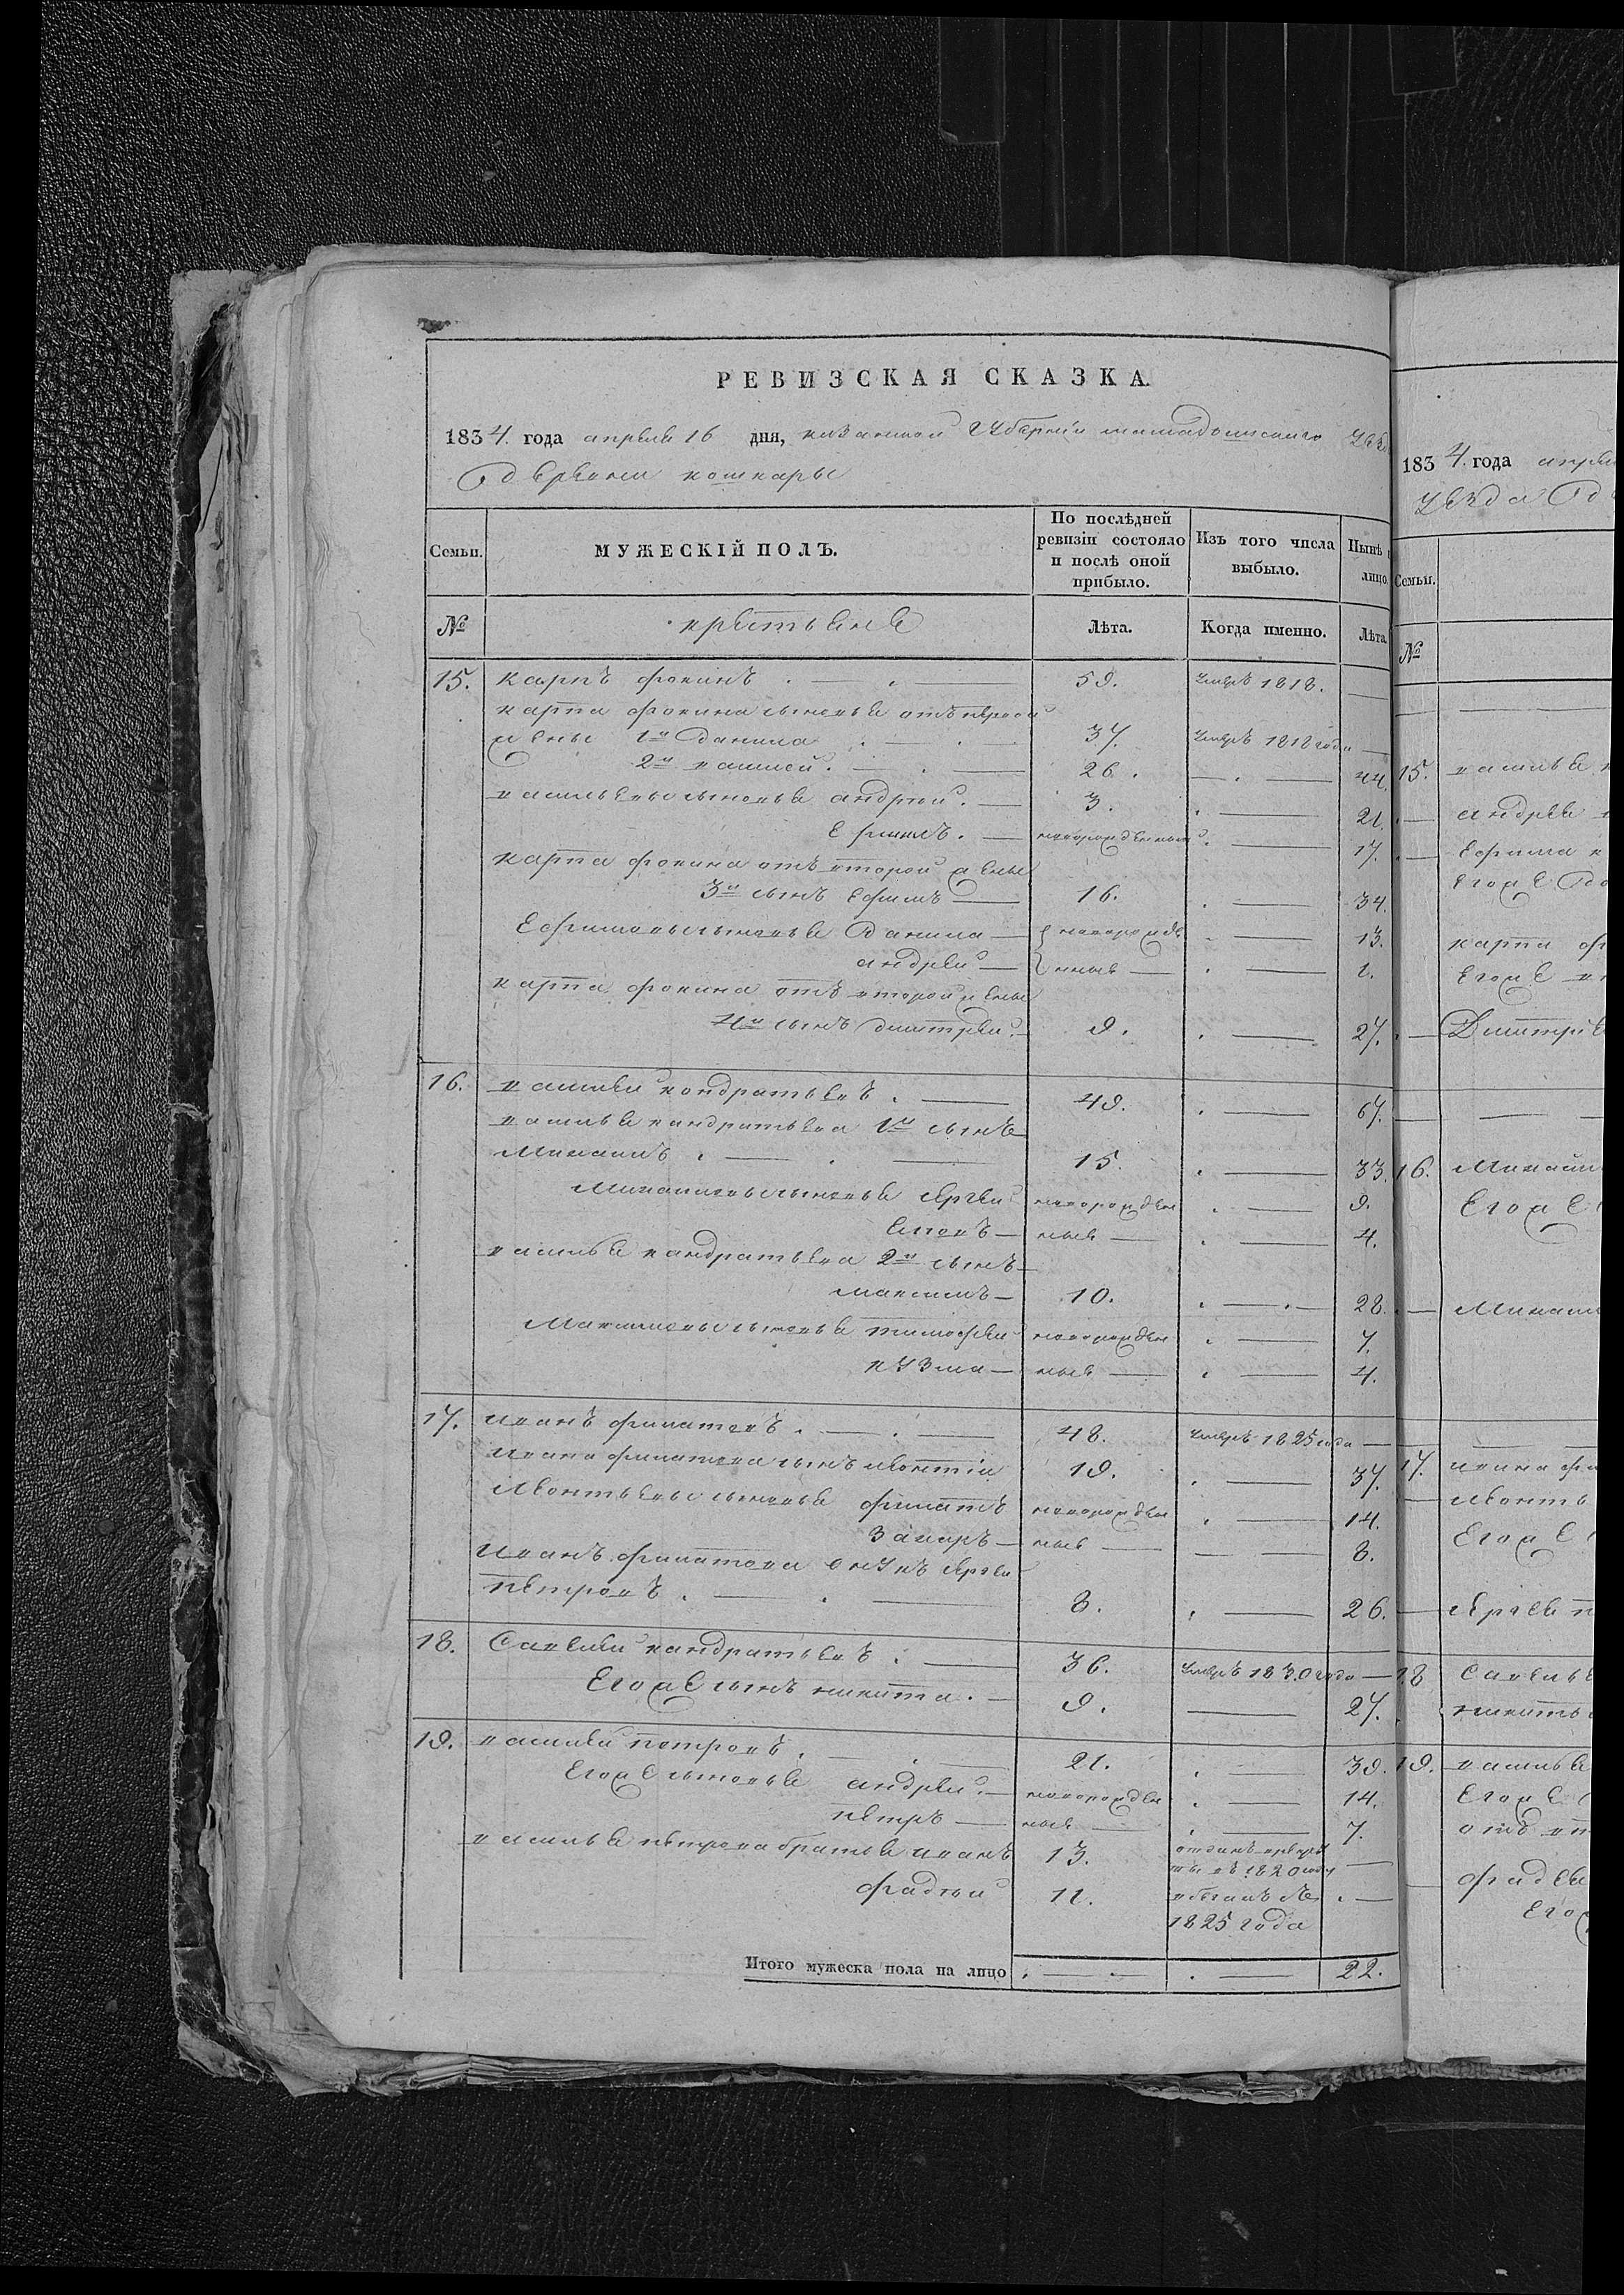 РЕВИЗСКАЯ СКАЗКА.
1834. года апреля 16 дня, казанской Губернiи
Деревни кошкары
Семьи. МУЖЕСКІЙ ПОЛЪ. По послѣдней ревизіи состояло и послѣ оной прибыло. Изъ того числа выбыло. Нынѣ лицо.
№ крестьяне Лѣта. Когда именно. Лѣта.
15. Карпъ фокинъ 59. умеръ 1818.
карпа фокина сыновья отъ первой
жены 1й Данила 37. умеръ 1818 года
2й василей 26. 44.
васильевы сыновья андрей 3. 21.
ефимъ новорожденный 17.
карпа фокина отъ второй жены
3й сынъ ефимъ 16. 34.
Ефимовы сыновья Данила новорожде 13.
андрей нные 1.
карпа фокина отъ второй жены
4й сынъ дмитрей 9. 27.
16. василей кондратьевъ 49. 67.
василья кандратьева 1й сынъ
Михаилъ 15. 33.
Михаиловы сыновья сергей новорожден 9.
ные 4.
василья кандратьева 2й сынъ
максимъ 10. 28.
Максимовы сыновья тимофей новорожден 7.
кузма ные 4.
17. иванъ филатовъ 48. умеръ 1825 года
ивана филатова сынъ леонтiй 19. 37.
Леонтьевы сыновья филатъ новорожден 14.
Захаръ ные 8.
Иванъ филатова внукъ сергей
петровъ 8. 26.
18. Савелей кандратьевъ 36. умеръ 1830 года
Егоже сынъ никита 9. 27.
19. василей петровъ 21. 39.
Егоже сыновья андрей новорожден 14.
петръ ные 7.
василья петрова братья иванъ 13. отданъ в рекруты въ 1820 году
фадей 11. 1825 года
Итого мужеска пола на лицо 22.
1834. года апреля
уезда
Семьи.
№
15. василья
андрея
ефима
егоже
карпа
егоже
Дмитрiя
16. Михаил
Егоже
17. ивана
леонть
Егоже
сергея
18 савелья
никиты
19. василья
Егоже
фадея